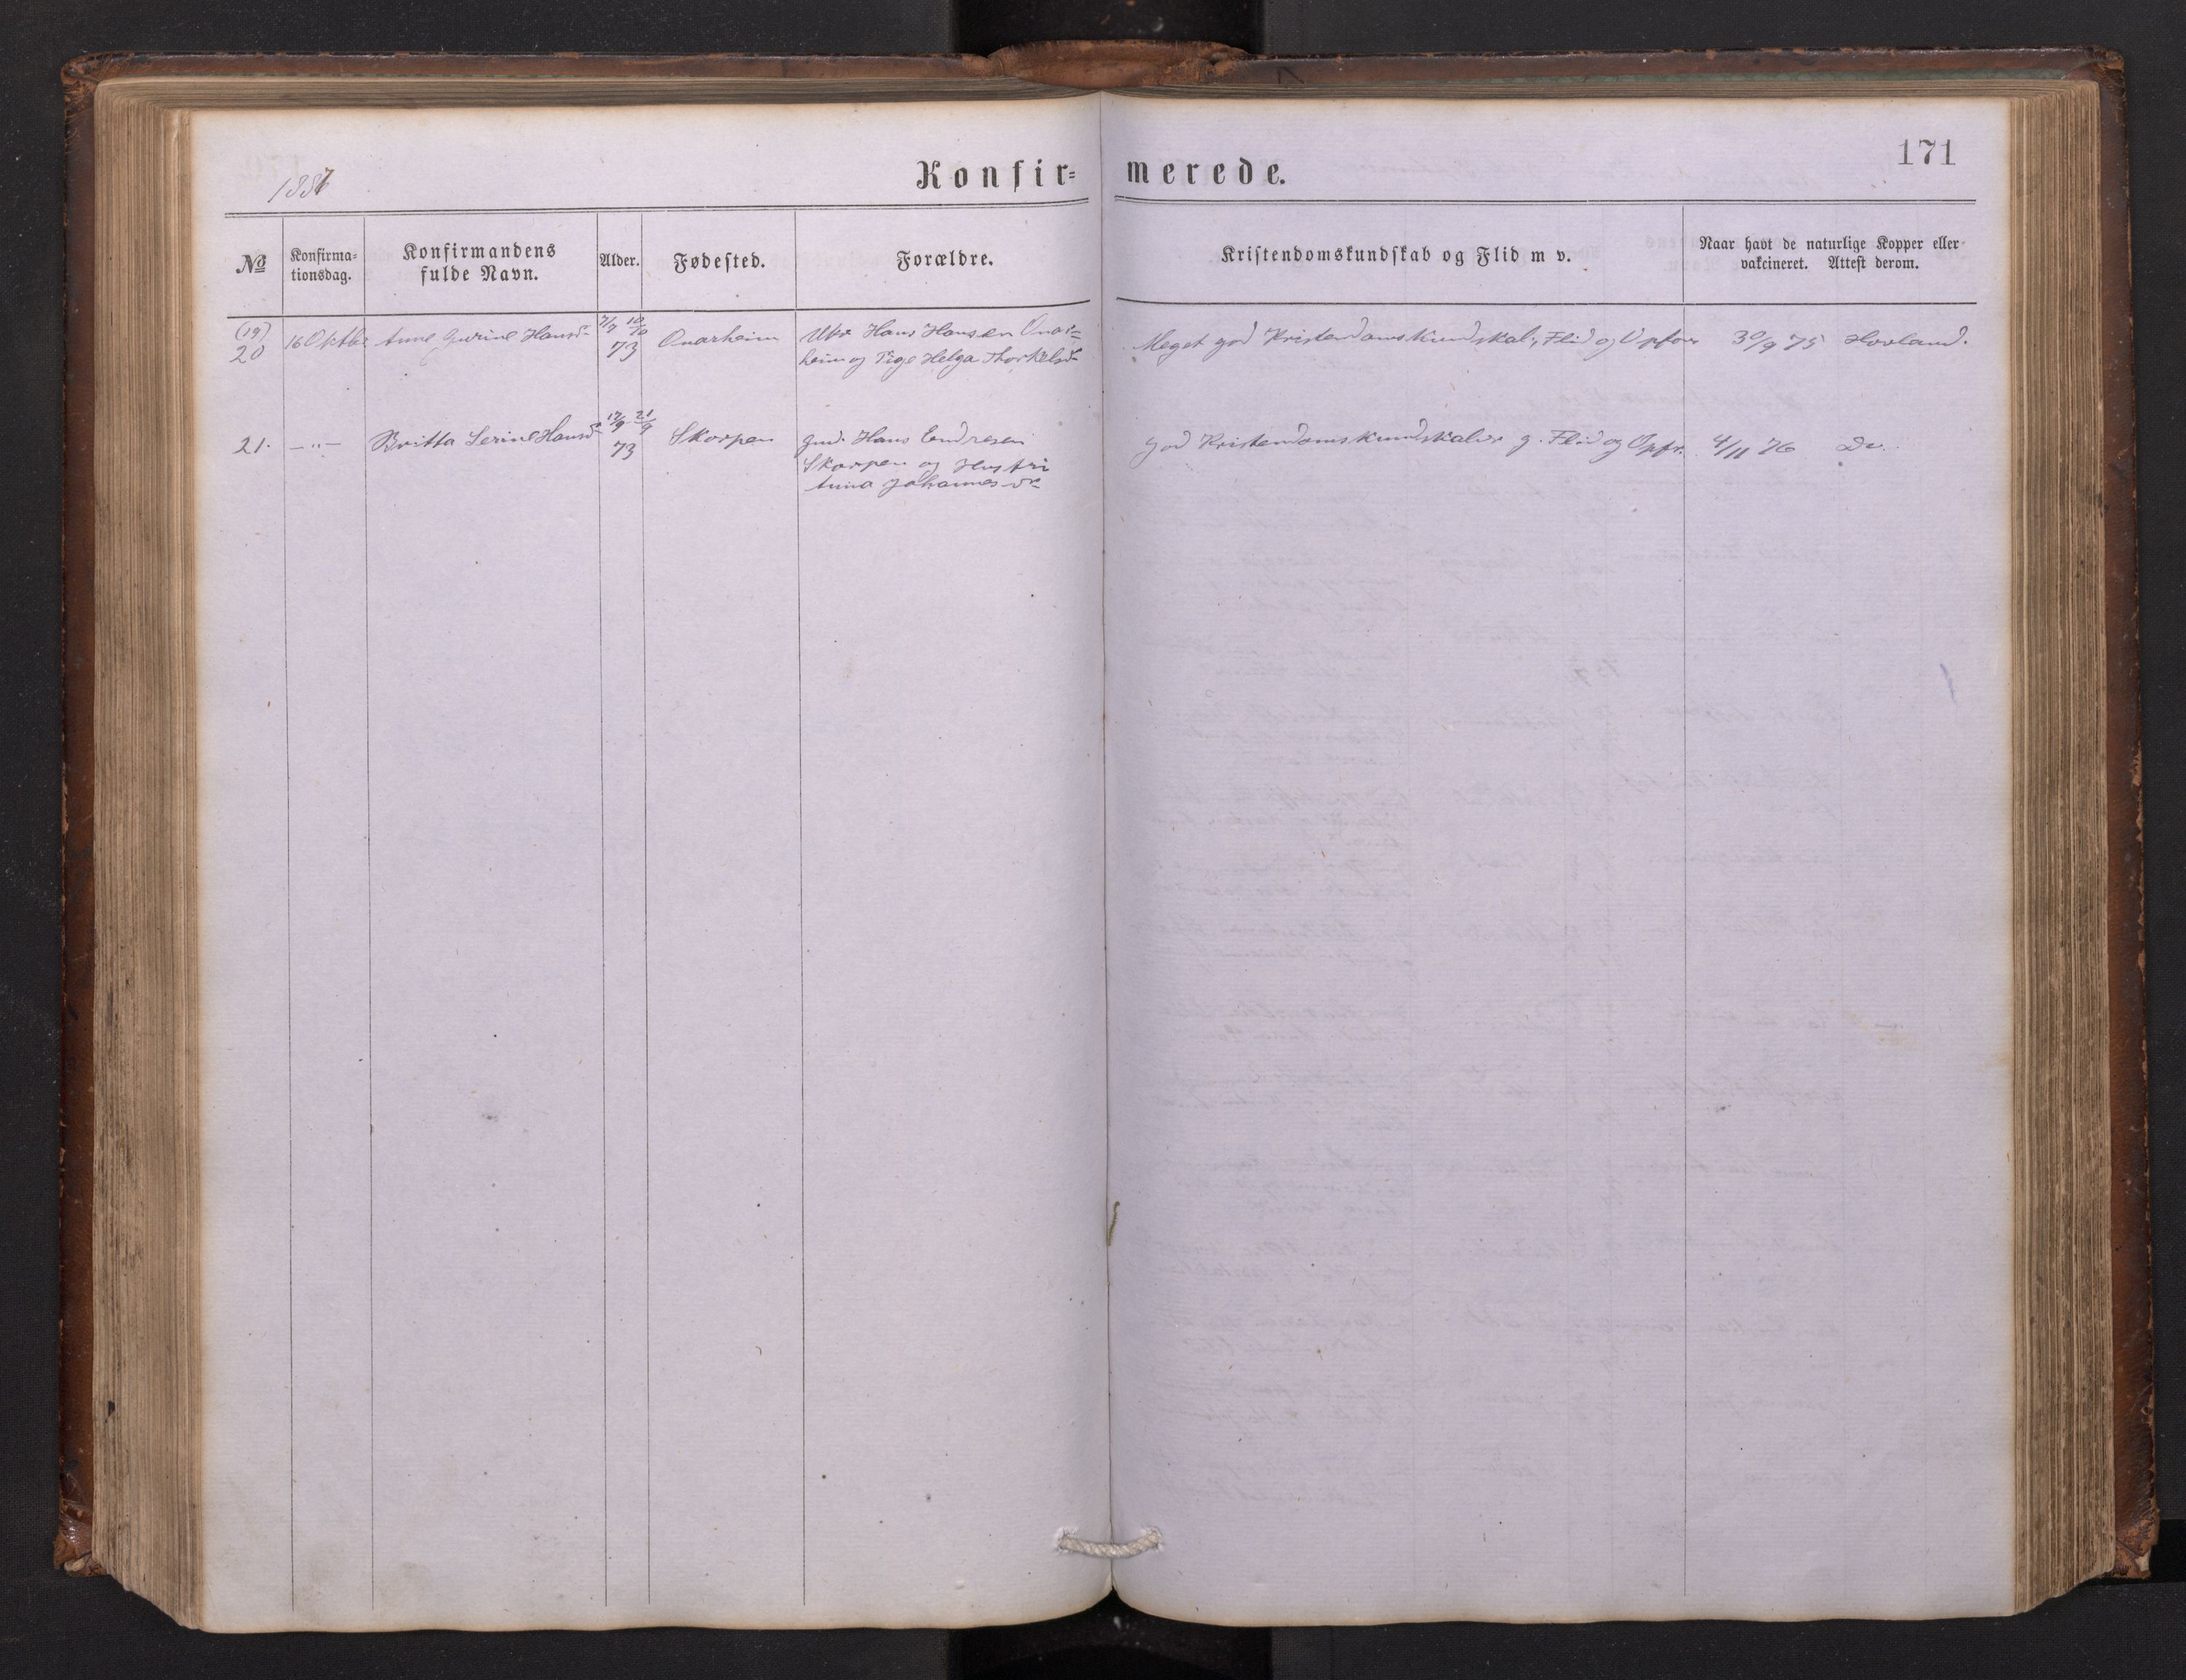 171
1887
Konfir= merede.
No
Konfirma-
tionsdag.
Konfirmandens
fulde Navn.
Alder.
Fødested.
Forældre.
Kristendomskundskab og Flid m v.
Naar havt de naturlige Kopper eller
vakcineret. Attest derom.
(19)
20
16 Oktbr
Anne Gurine Hansdr
7/7 10/10
73
Onarheim
Ugv Hans Hansen Onar=
heim og Pige Helga Thorkelsdr
Meget god Kristendomskundskab, Flid og Opfør
30/9 75 Hovland.
21.
—"—
Britta Serine Hansdr
17/9 21/9
73
Skorpen
Gmd. Hans Endresen
Skorpen og Hustru
Anna Johannesdr
God Kristendomskundskab g. Flid og Opfr.
4/11 76 Do.